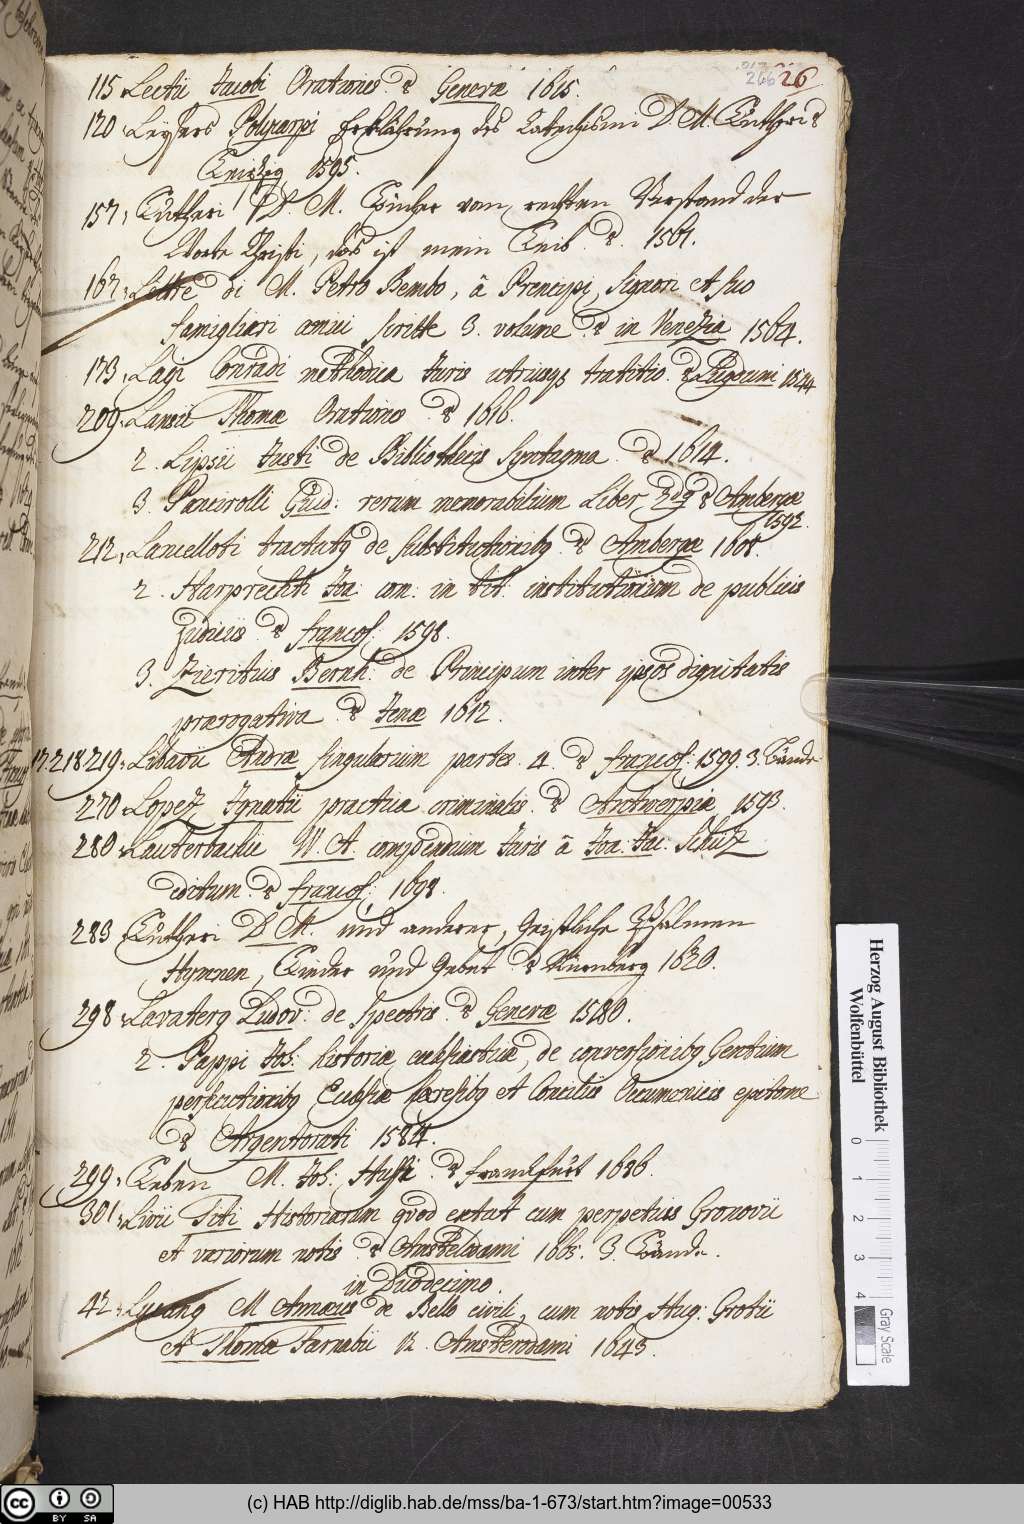 266 26
115 Lectii Jacobi Orationes. Genevæ 1615.
120 Leysers Polycarpi Erklährung des Catechismi D M. Lutheri
Leipzig 1595.
157, Lutheri D. M. Bücher vom rechten Verstand der
Worte Christi, das ist mein Leib. 1561.
167, Lettre di M. Petro Bembo, â Prencipi, Signori et suo
famigliari amici scritte 3. volume in Venezia 1564.
173, Lagi Conradi methodica Juris utriusq tratatio. Lugduni 1544
209. Lansii Thomæ Orationes 1616.
2. Lipsii Justi de Bibliothecis Syntagma 1614.
3. Pancirolli Guid: rerum memorabilium Liber 2dq Ambergæ
1592.
212, Lancelloti tractatq de substitutionibq. Ambergæ 1608.
2. Harprechti Joa: com: in tit: institutionum de publicis
Judiciis francof: 1598.
3. Zieritius Bernh: de Principum inter ipsos dignitatis
prærogativa. Jenæ 1612.
17.218 219. Libavii Andræ singularium partes. 4. francof: 1599. 3. Bände
270 Lopez Ignatii practica criminalis. Antwerpiæ 1593.
280. Lauterbachii W. A. compendium Juris â Joa: Jac: Schütz
editum. francof: 1698.
283 Lutheri D. M. und anderer, Geistliche Psalmen
Hymnen, Lieder und Gebet Nürnberg 1630.
298 Lavaterq Ludov: de Spectris. Genevæ 1580.
2. Pappi Joh: historiæ ecclesiasticæ, de conversionibq Gentium
persecutionibq Ecclesiæ hæresibq et Conciliis Oecumenicis epitome
Argentorati 1584.
299. Leben M. Joh: Hussi. franckfurt 1686.
301. Livii Titi Historiarum quod extat cum perpetuis Gronovii
et variorum notis Amstelodami 1665. 3. Bände.
in Duodecimo.
42. Lucanq M Annæus de Bello civili, cum notis Hug: Grotii
et Thomæ Farnabii 12. Amsterodami 1643.
Herzog August Bibliothek
Wolfenbüttel
0 1 2 3 4
Gray Scale
CC BY SA
(c) HAB http://diglib.hab.de/mss/ba-1-673/start.htm?image=00533